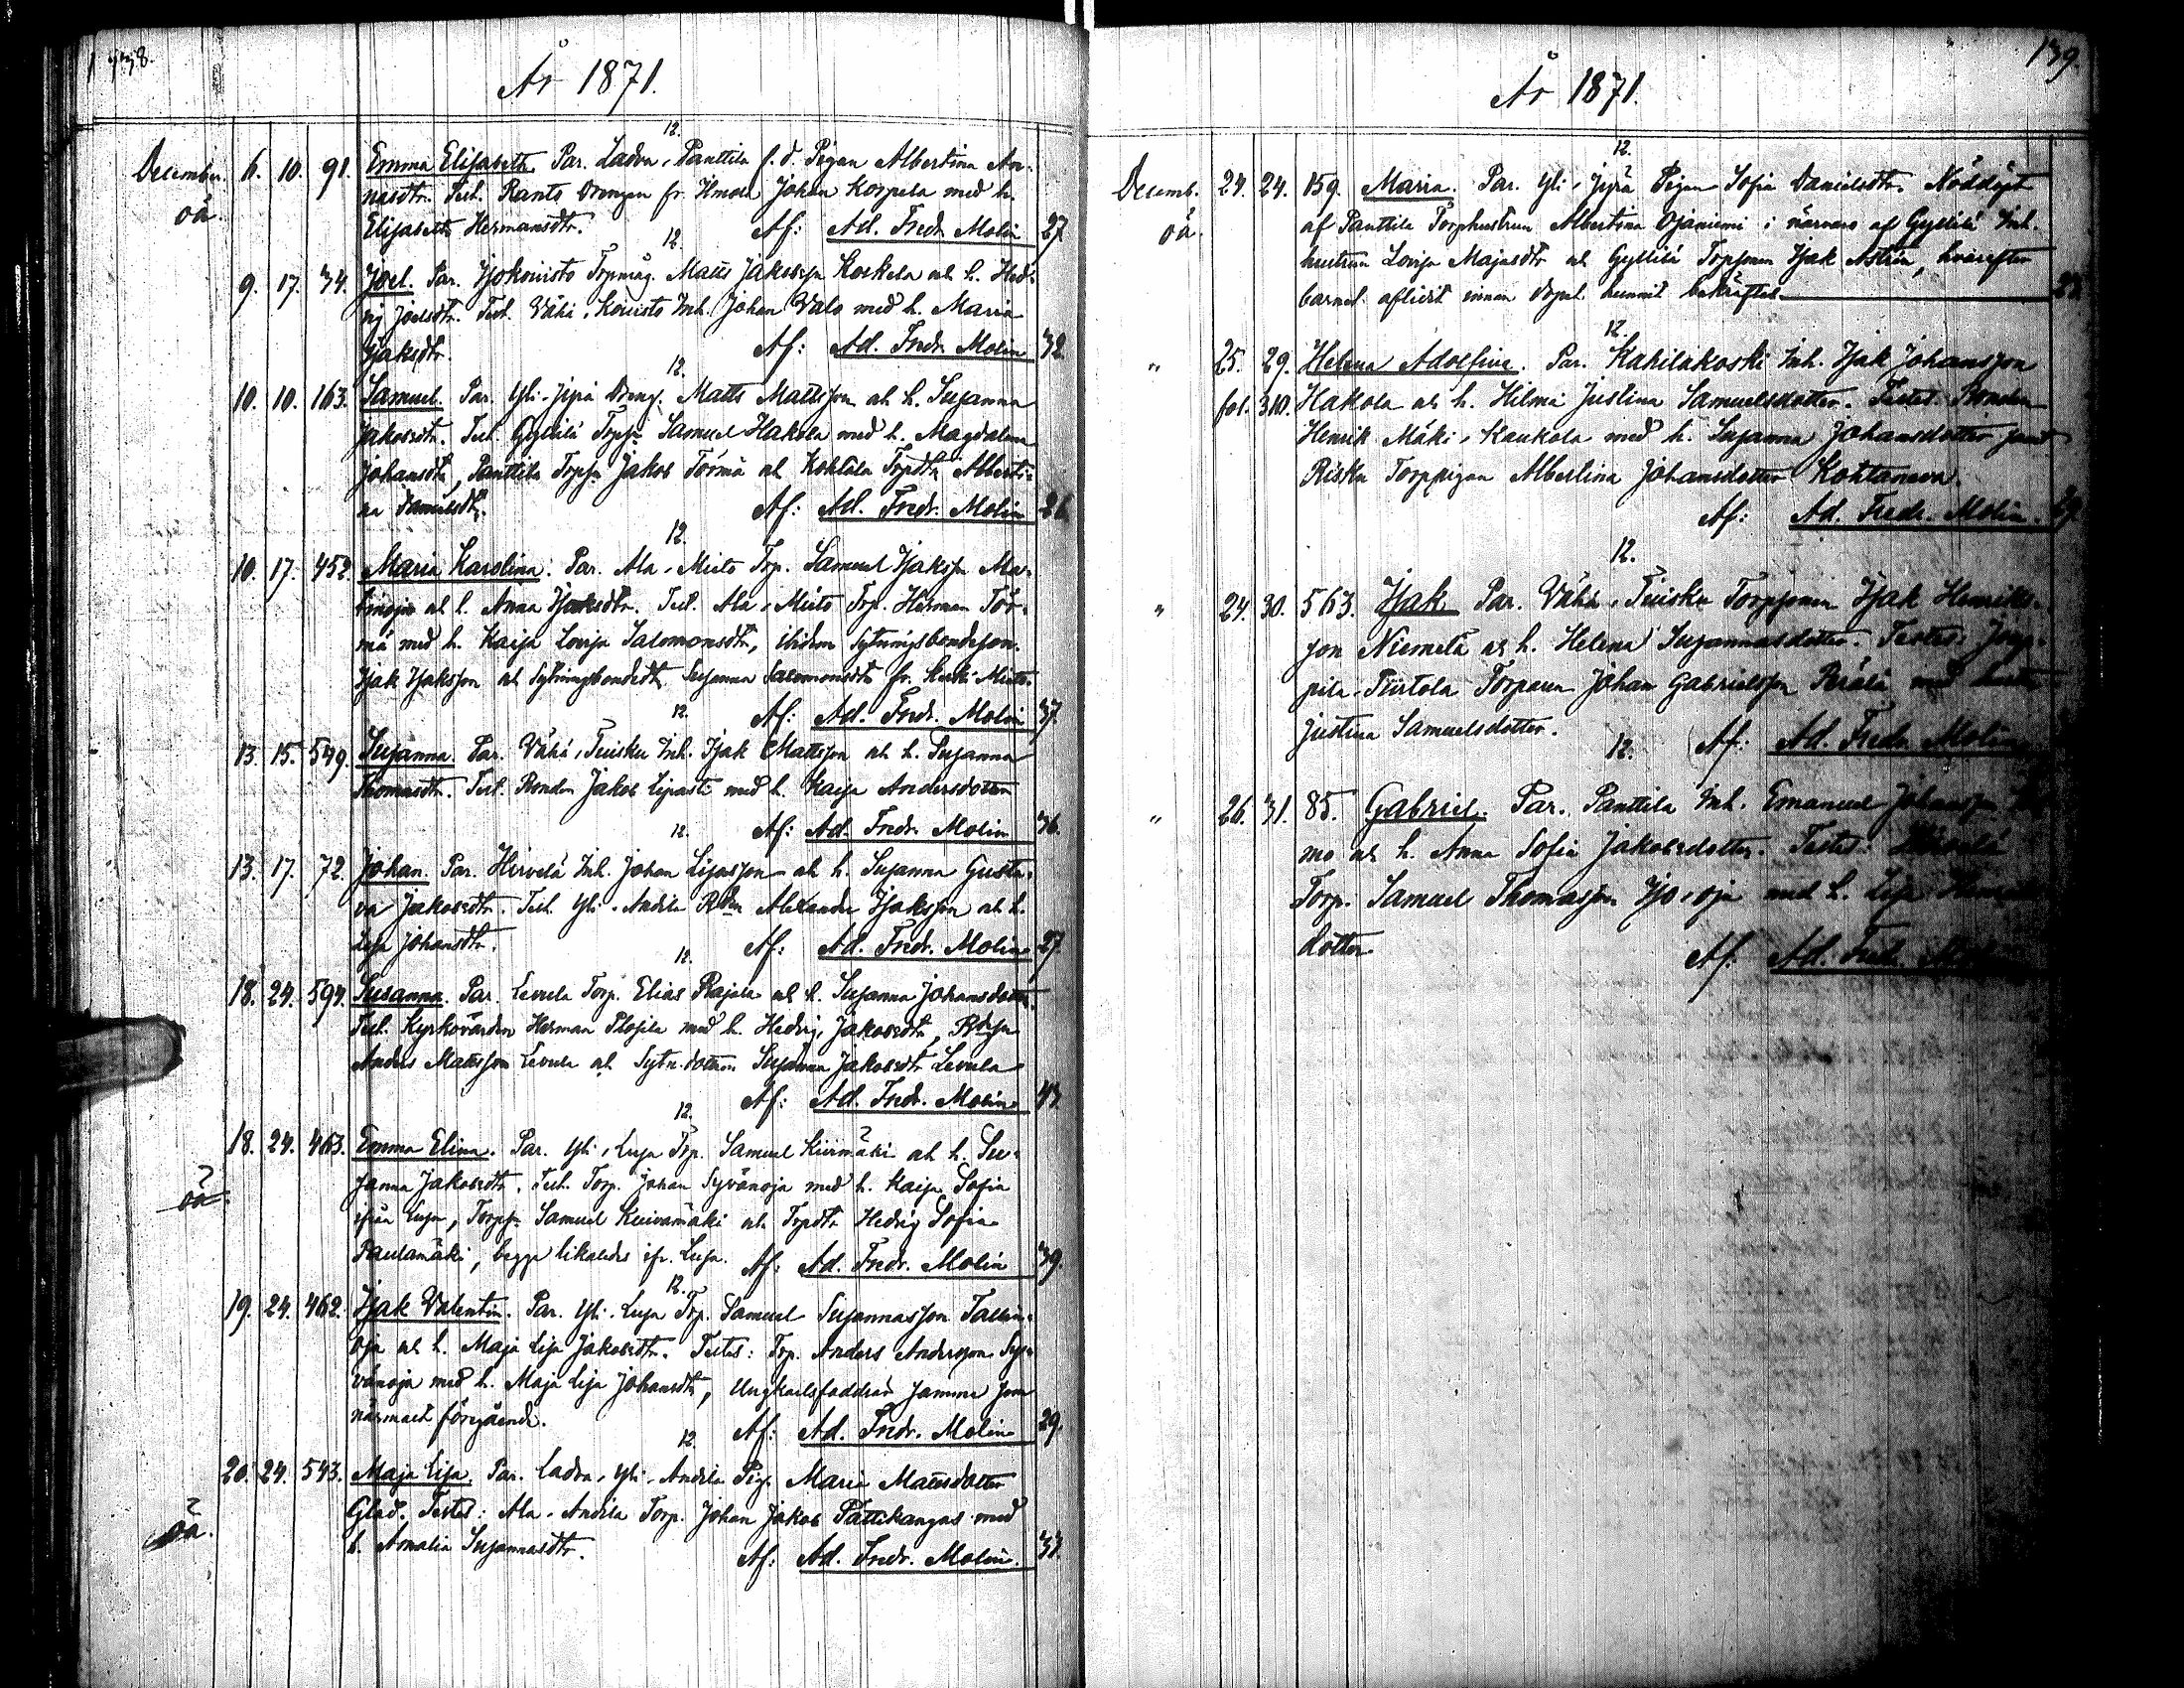 138.
År 1871.
12.
December. 6. 10. 91. Emma Elisabeth. Par. Ladva, Panttila f. d. Pigan Albertina An-
oä. nasdtr. Test. Ranto Drengen fr. Ilmola Johan Korpela med h.
Elisabeth Hermansdtr. Af: Ad. Fredr. Molin 27.
12.
9. 17. 34. Joel. Par. Isokoivisto Torpmåg. Matts Jakobsson Koskela och h. Hed-
vig Joelsdtr. Test. Vähä-Koivisto Inh. Johan Valo med h. Maria
Isaksdtr. Af: Ad. Fredr. Molin 32.
12.
10. 10. 163. Samuel. Par. Yli-Jyrä Dreng. Matts Mattsson och h. Susanna
Jakobsdtr. Test. Gyllilä Torpson Samuel Hakola med h. Magdalena
Johansdtr, Panttila Torpson Jakob Törmä och Kohtala Torpdtr Alberti-
na Samuelsdtr. Af: Ad. Fredr. Molin 26.
12.
10. 17. 452. Maria Karolina. Par. Ala-Mieto Torp. Samuel Isaksson Ma-
och h. Anna Isaksdtr. Test. Ala-Mieto Torp. Herman Tör-
mä med h. Kaisa Lovisa Salomonsdtr, ibidem Sytningsbondeson.
Isak Isaksson och Sytningsbondedtr Susanna Salomonsdtr fr. Mieto.
Af: Ad. Fredr. Molin 37.
12.
13. 15. 549. Susanna. Par. Vähä-Tuisku Inh. Isak Mattsson och h. Susanna
Thomasdtr. Test. Bonden Jakob Lipasti med h. Kaisa Andersdotter
Af: Ad. Fredr. Molin 36.
12.
13. 17. 72. Johan. Par. Hirvelä Inh. Johan Lisasson och h. Susanna Gusta-
va Jakobsdtr. Test. Yli-Andila Alexander Isaksson och h.
Lisa Johansdtr. Af: Ad. Fredr. Molin 27.
12.
18. 24. 594. Susanna. Par. Levula Torp. Elias Rajala och h. Susanna Johansdotter.
Test. Kyrkovärden Herman Plosila med h. Hedvig Jakobsdtr,
Anders Mattsson Levula och Sytn.dottern Susanna Jakobsdtr Levula
Af: Ad. Fredr. Molin 43.
12.
18. 24. 463. Emma Elina. Par. Yli-Luja Torp. Samuel Kiirimäki och h. Su-
oä. sanna Jakobsdtr. Test. Torp. Johan Syvänoja med h. Kaisa Sofia
ifrån Luja, Torpson Samuel Kuivamäki och Torpdtr Hedvig Sofia
Paulamäki, begge likaledes ifr. Luja. Af: Ad. Fredr. Molin 39.
12.
19. 24. 462. Isak Valentin. Par. Yli-Luja Torp. Samuel Susannasson
oja och h. Maja Lisa Jakobsdtr. Testes: Torp. Anders Andersson Sy-
vänoja med h. Maja Lisa Johansdtr, Ungkarlsfaddrar samma som
närmast föregående. Af: Ad. Fredr. Molin 29.
12.
20. 24. 543. Maja Lisa. Par. Ladva, Yli-Andila Pig. Maria Mattsdotter
oä. Glad. Testes: Ala-Andila Torp. Johan Jakob Pättikangas med
h. Amalia Susannasdtr. Af: Ad. Fredr. Molin. 33.
139.
År 1871.
12.
Decemb. 24. 24. 159. Maria. Par. Yli-Jyrä Pigan Sofia Danielsdtr. Nöddöpt
oä. af Panttila Torphustrun Albertina Ojaniemi i närvaro af Gyllilä Inh.
hustrun Lovisa Majasdtr och Gyllilä Torpsonen Isak Aströn, hvarefter
barnet aflidit innan dopet hunnit bekräftas.
12.
" 25. 29. Helena Adolfine. Par. Kahilakoski Inh. Isak Johansson
fol. 310. Hakola och h. Hilma Justina Samuelsdotter. Testes: Bonden
Henrik Mäki-Kaukola med h. Susanna Johansdotter samt
Risku Torppigan Albertina Johansdotter Kohtaneva.
Af: Ad. Fredr. Molin. 29.
12.
" 24. 30. 563. Isak. Par. Vähä-Tuisku Torpsonen Isak Henriks-
son Niemelä och h. Helena Susannasdotter. Testes:
pila-Tiirtola Torparen Johan Gabrielsson Perälä med hustru
Justina Samuelsdotter.
12. Af: Ad. Fredr. Molin
" 26. 31. 85. Gabriel. Par. Panttila Inh. Emanuel Johansson
mo och h. Anna Sofia Jakobsdotter. Testes: Hirvelä
Torp. Samuel Thomasson Iso-oja med h. Lisa
dotter.
Af. Ad. Fredr.